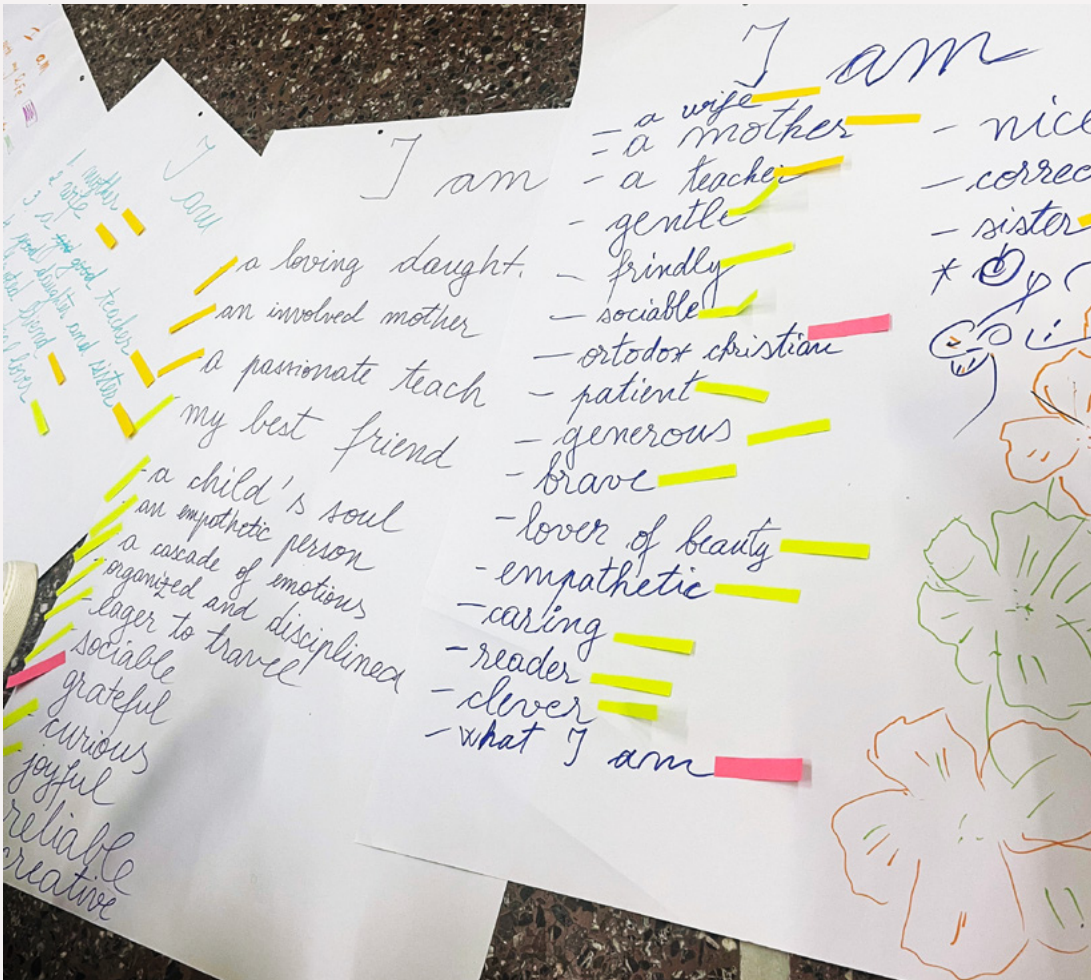 I am
1 mother
2 wife
3 a good teacher
4 good daughter and sister
I am
a loving daught.
an involved mother
a passionate teach
my best friend
- a child's soul
- an empathetic person
a cascade of emotions
- organized and disciplined
- eager to travel
sociable
grateful
curious
joyful
reliable
creative
I am
- a wife
- a mother
- a teacher
- gentle
- frindly
- sociable
- ortodox christian
- patient
- generous
- brave
- lover of beauty
- empathetic
- caring
- reader
- clever
- what I am
- nice
- correc
- sister